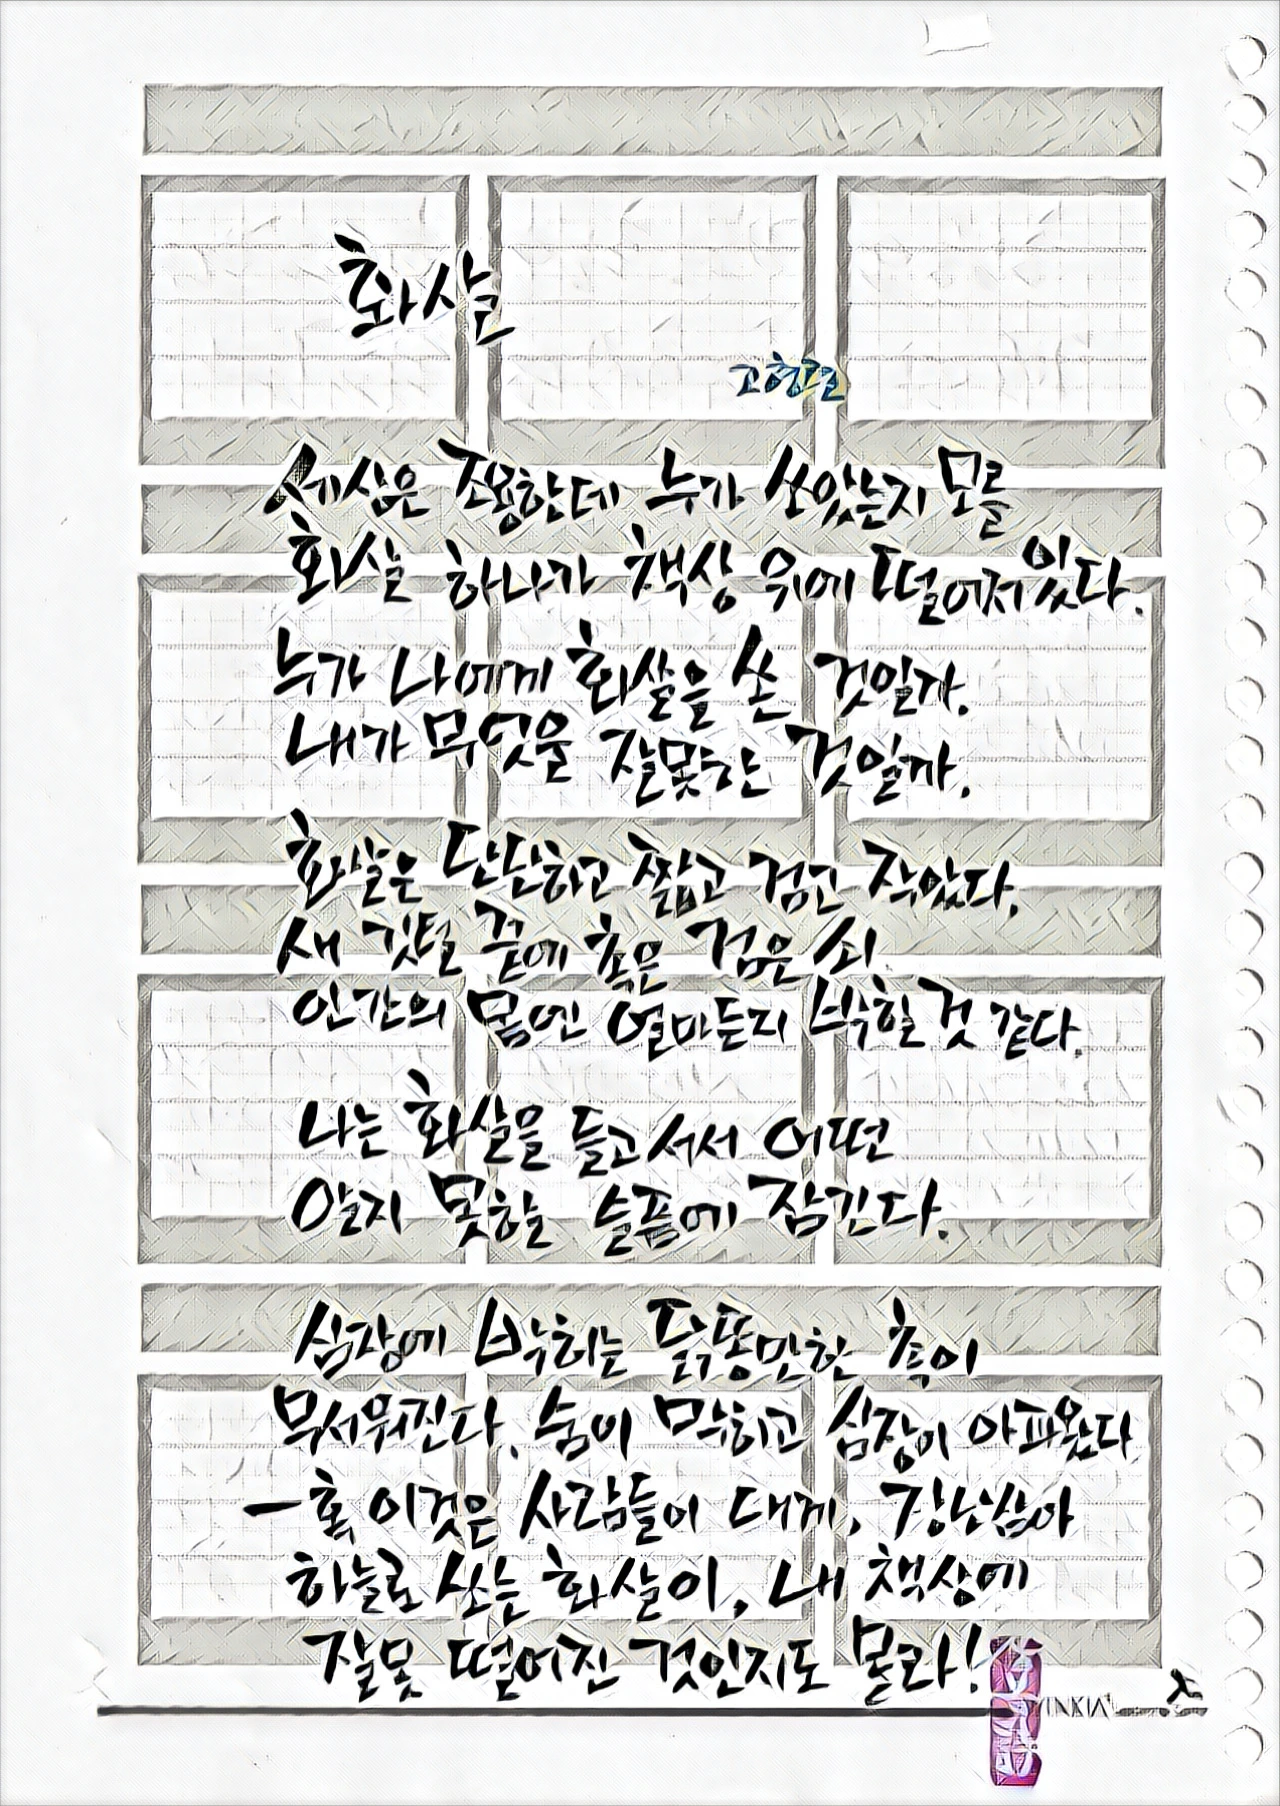 화살
고형렬
세상은 조용한데 누가 쏘았는지 모를
화살 하나가 책상 위에 떨어져있다.
누가 나에게 화살을 쏜 것일까.
내가 무엇을 잘못한 것일까.
화살은 단단하고 짧고 검고 작았다.
새 깃털 끝에 촉은 검은 쇠.
인간의 몸엔 얼마든지 박힐 것 같다.
나는 화살을 들고 서서 어떤
알지 못할 슬픔에 잠긴다.
심장에 박히는 닭똥만한 촉이
무서워진다. 숨이 막히고 심장이 아파왔다
—혹 이것은 사람들이 대게, 장난삼아
하늘로 쏘는 화살이, 내 책상에
잘못 떨어진 것인지도 몰라!